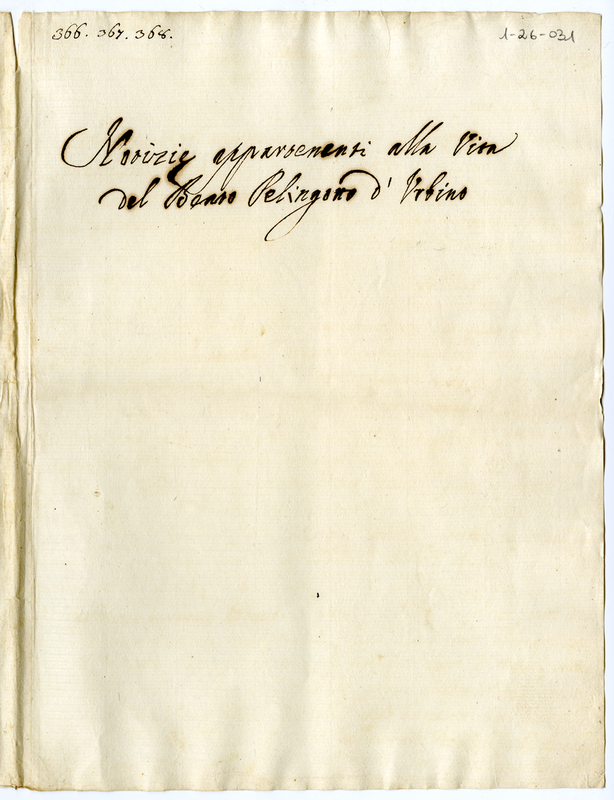 366. 367. 368.
1-26-031
Notizie appartenenti alla Vita
del Beato Pelingotto d' Urbino